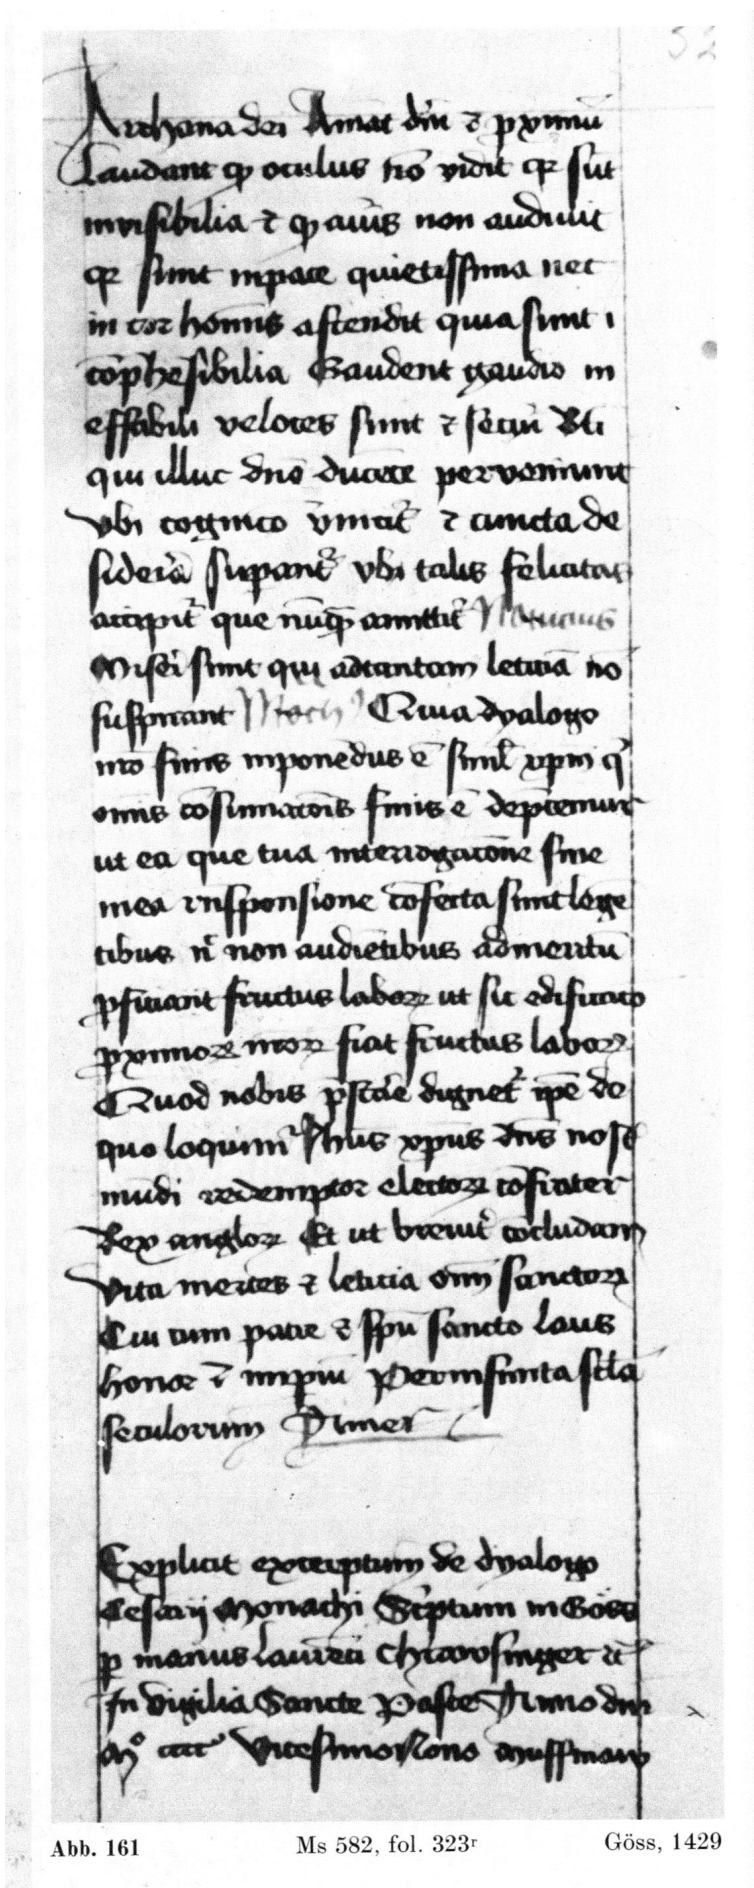 52
Archana dei Amat dm̄ ⁊ pximū
Laudant qꝫ oculus nō vidit qꝛ sūt
invisibilia ⁊ qꝫ auris non audiuit
qꝛ sunt inpace quietissima nec
in cor hoīnis ascendit quia sunt ī
cōp̄hēsibilia Gaudent gaudio in
effabili veloces sunt ⁊ secuꝛi Bti
qui illuc dn̄o ducēte perveniunt
vbi cognico vincit᷑ ⁊ cuncta de
sideria supant᷑ vbi talis felicitas
accipit᷑ que nūqꝫ amittit᷑ Nouicius
Miseri sunt qui adtantam leticiā nō
suspirant Moch⁹ Quia dyalogo
nr̄o finis inponēdus ē siml̄ xpm̄ q̄
om̄is cōsumacōis finis ē dep̄cemur
ut ea que tua interrogacōne siue
mea rnsponsione cōfecta sunt lege
tibus ul̄ non audiētibus admeritū
pficiant fructus laboꝝ ut sic edificaco
pximoꝝ nr̄oꝝ fiat fructus laboꝝ
Quod nobis p̄stare dignet᷑ ip̄e de
quo loquim᷑ Jhūs xp̄us dn̄s nost᷑
mūdi redemptor electoꝝ cōfrater
Rex angloꝝ Et ut breuit᷑ cōcludam
vita merces ⁊ leticia om̄ sanctoꝝ
Cui cum patre ⁊ sp̄u sancto laus
honor ⁊ imp̄iū Perinfinita sc̄la
seculorum Amen
Explicit excerptum de dyalogo
Cesarij Monachi Sc̄ptum in Göss
p manus Laurēcii
In vigilia Sancte Pasce Anno dm̄
Mº cccc Vicesimo Nono
Abb. 161 Ms 582, fol. 323ʳ Göss, 1429